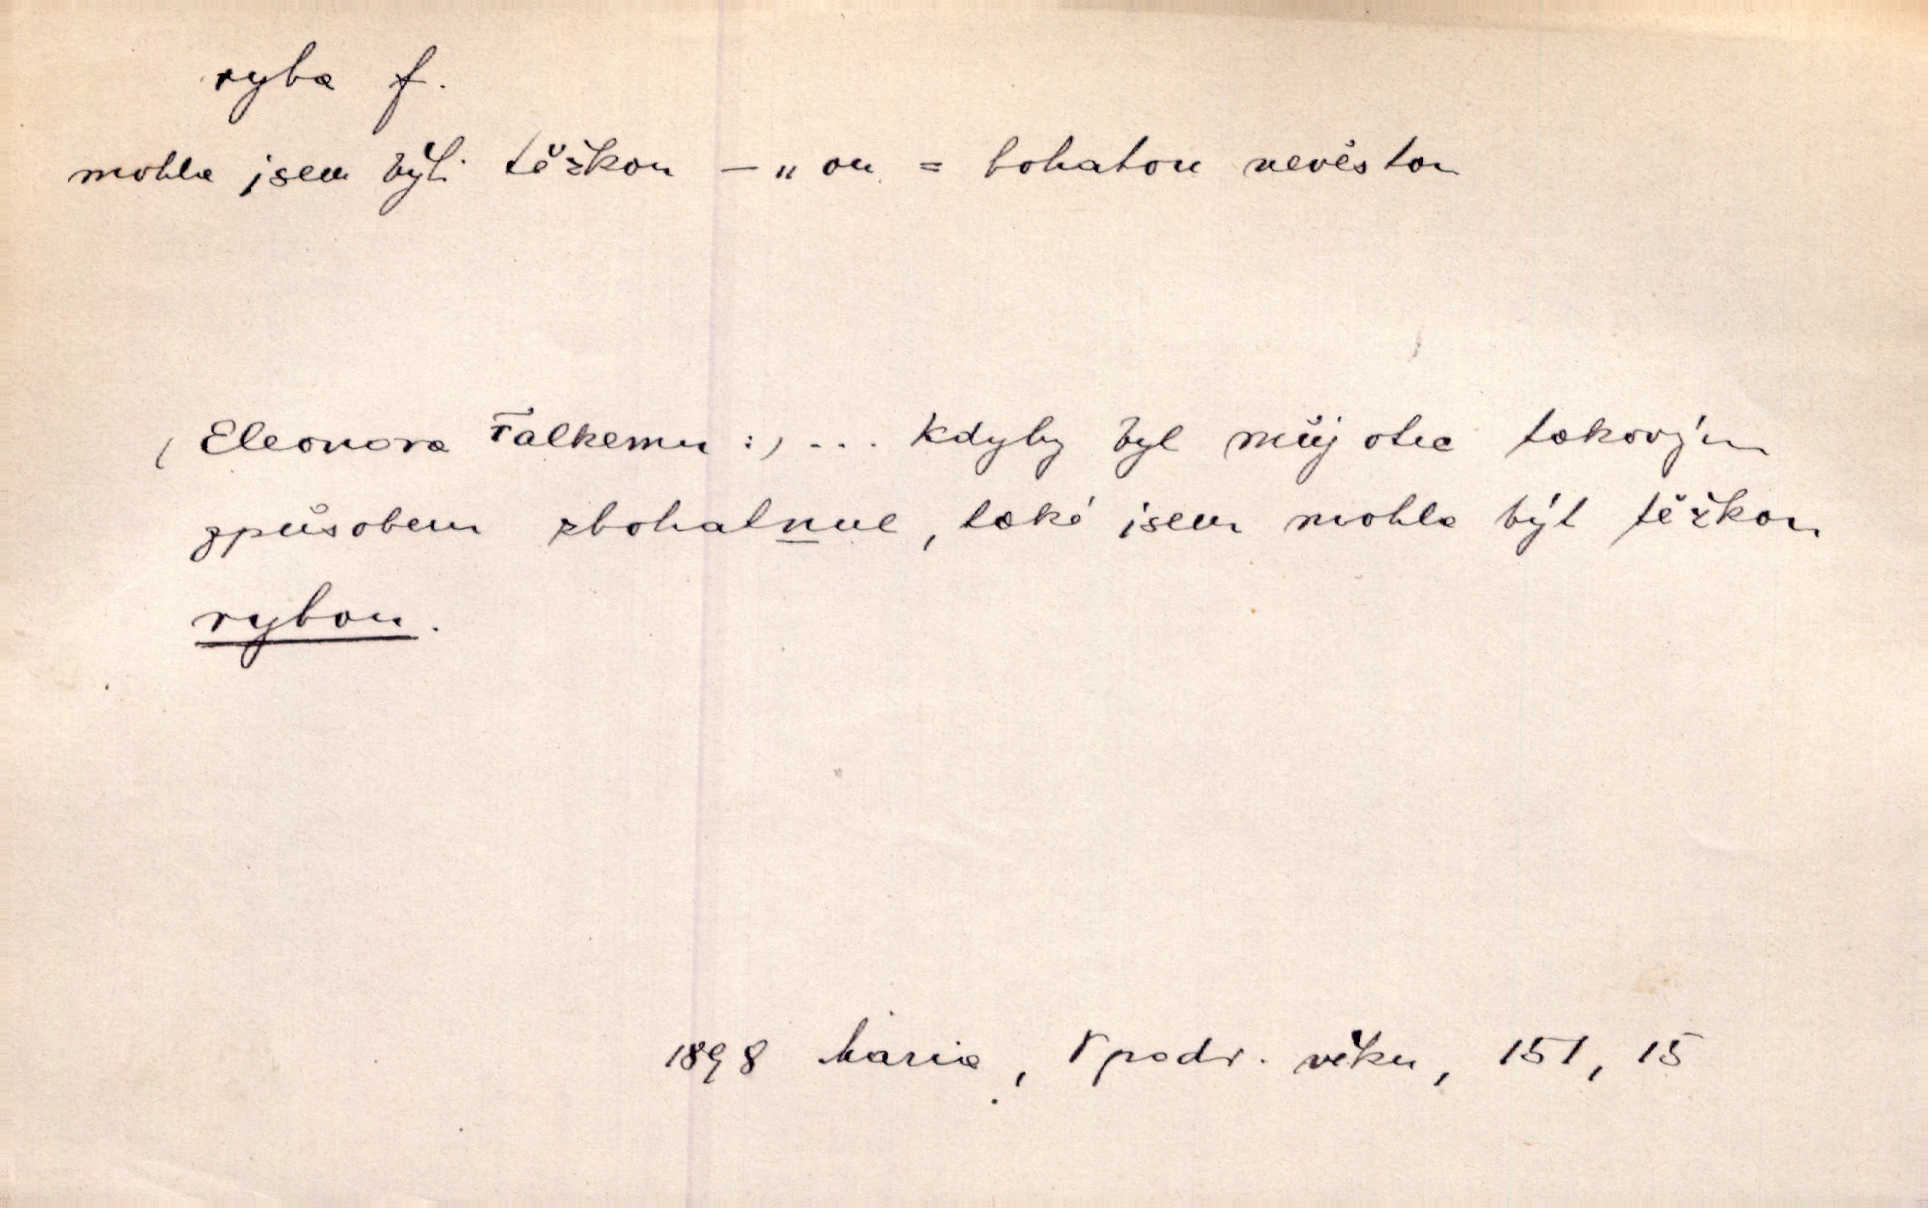 ryba f.
mohla jsem býti těžkou – " ou = bohatou nevěstou
(Eleonora Falkemu:) ... Kdyby byl můj otec takovým
způsobem zbohatnul, také jsem mohla být těžkou
rybou.
1898 Maria, V podv. věku, 151, 15